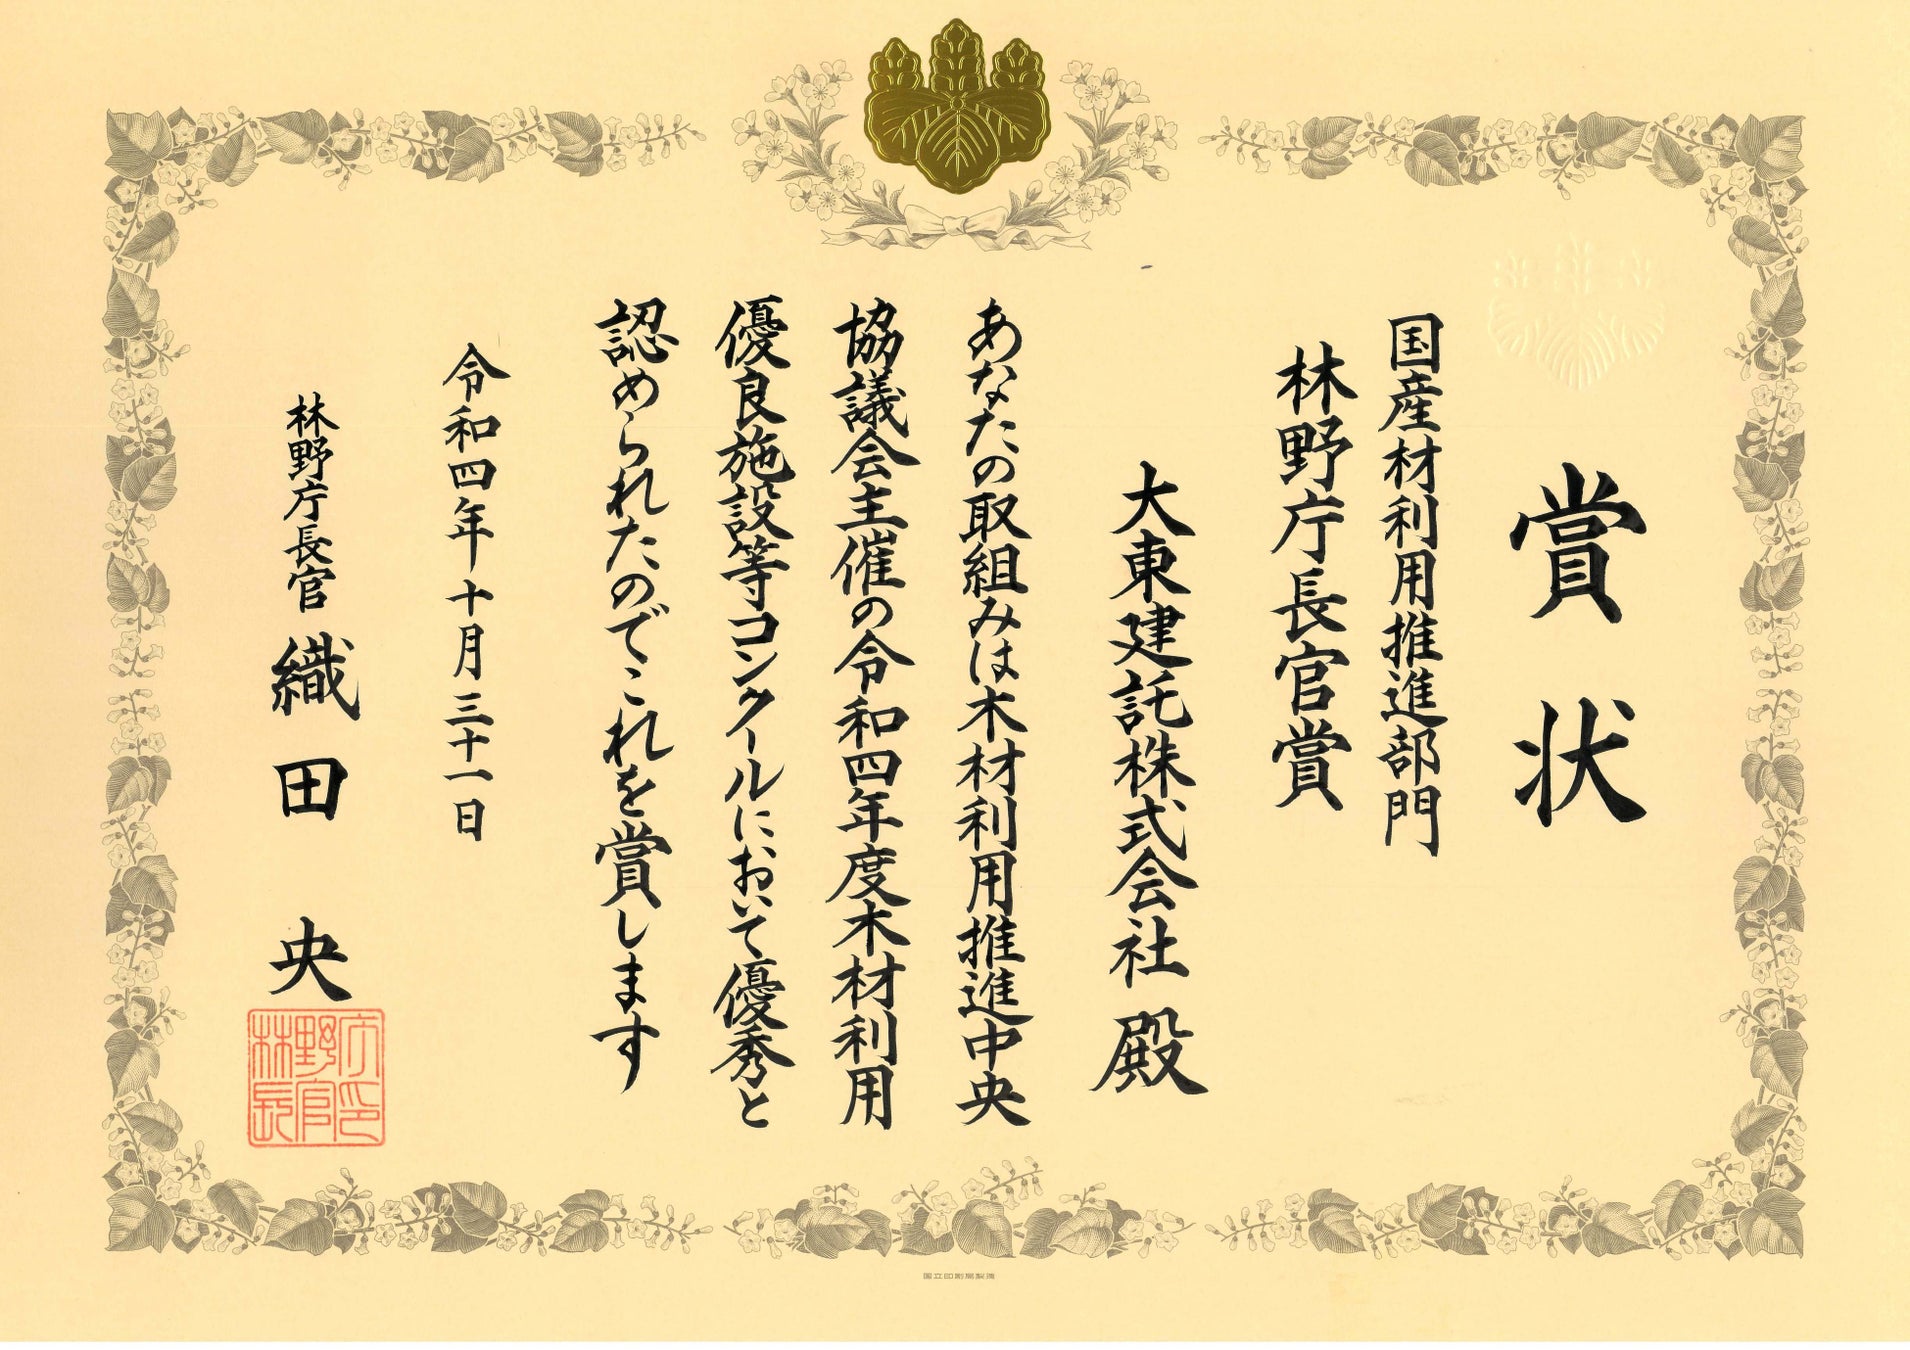 賞状
国産材利用推進部門
林野庁長官賞
大東建託株式会社 殿
あなたの取組みは木材利用推進中央
協議会主催の令和四年度木材利用
優良施設等コンクールにおいて優秀と
認められたのでこれを賞します
令和四年十月三十一日
林野庁長官 織田 央
林野庁長官印
国立印刷局製造